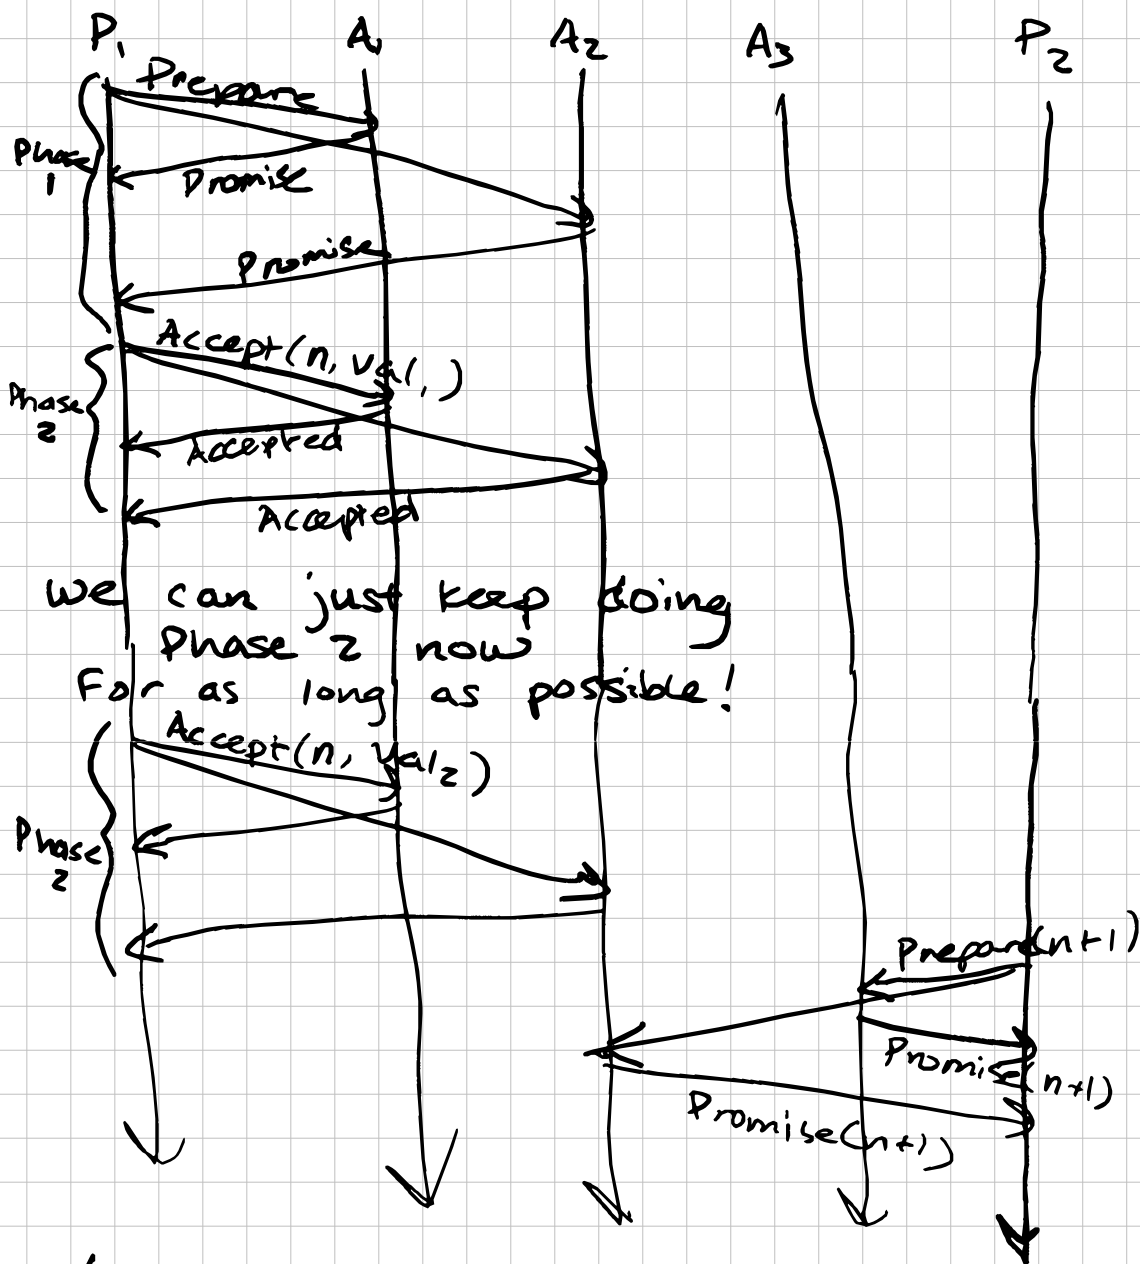 P₁ A₁ A₂ A₃ P₂
Prepare
Phase
1
Promise
Promise
Accept(n, val₁)
Phase
2
Accepted
Accepted
we can just keep doing
Phase 2 now
For as long as possible!
Accept(n, val₂)
Phase
2
Prepare(n+1)
Promise(n+1)
Promise(n+1)